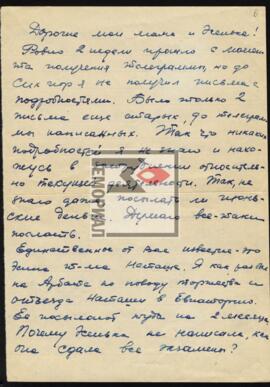 6
Дорогие мои мама и Женька!
Ровно 2 недели прошло с момен-
та получения телеграммы, но до
сих пор я не получил письма с
подробностями. Было только 2
письма еще старые, до телеграм-
мы написанных. Так что никаких
подробностей я не знаю и нахо-
жусь в относитель-
но текущей Так, не
знаю даже посылать ли июнь-
ские деньги. Думаю все-таки
послать.
Единственное от Вас известие - это
Я как раз был
на Арбате по поводу торжества и
отъезда Наташи в Евпаторию.
Ее посылают туда на 2 месяца.
Почему Женька не написала, как
она сдала все экзамены?
МЕМОРИАЛ